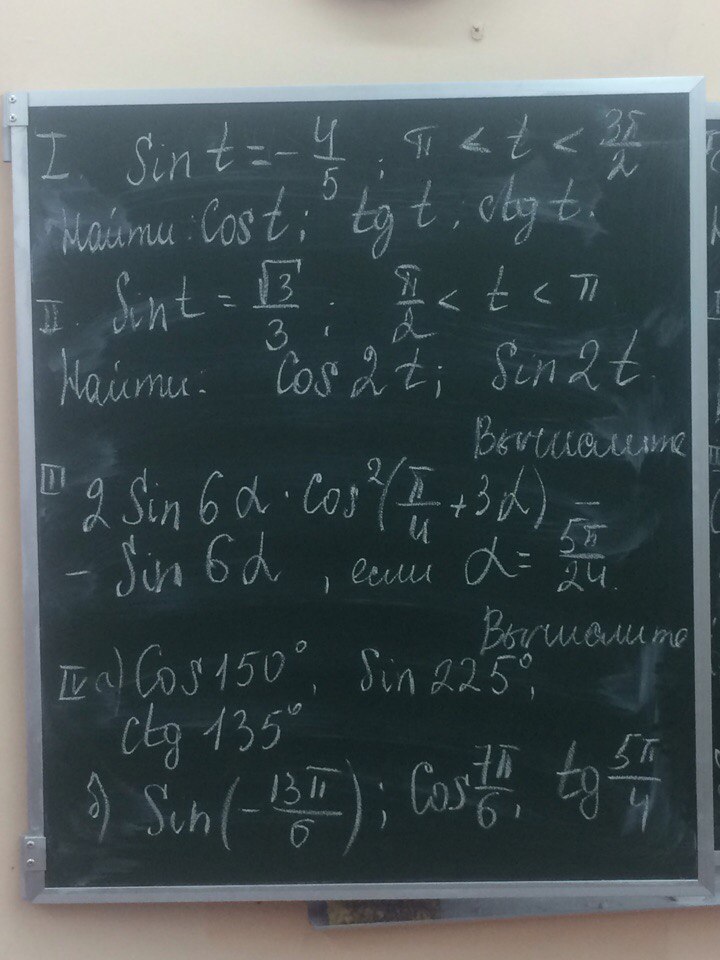 I. Sin t = - 4/5 ; π < t < 3π/2
Найти: Cos t; tg t; ctg t.
II. Sin t = √3/3 ; π/2 < t < π
Найти: Cos 2t; Sin 2t.
Вычислите
III 2 Sin 6α · Cos²(π/4 + 3α) –
– Sin 6α , если α = 5π/24.
Вычислите
IV а) Cos 150°, Sin 225°,
ctg 135°
б) Sin(-13π/6); Cos 7π/6, tg 5π/4